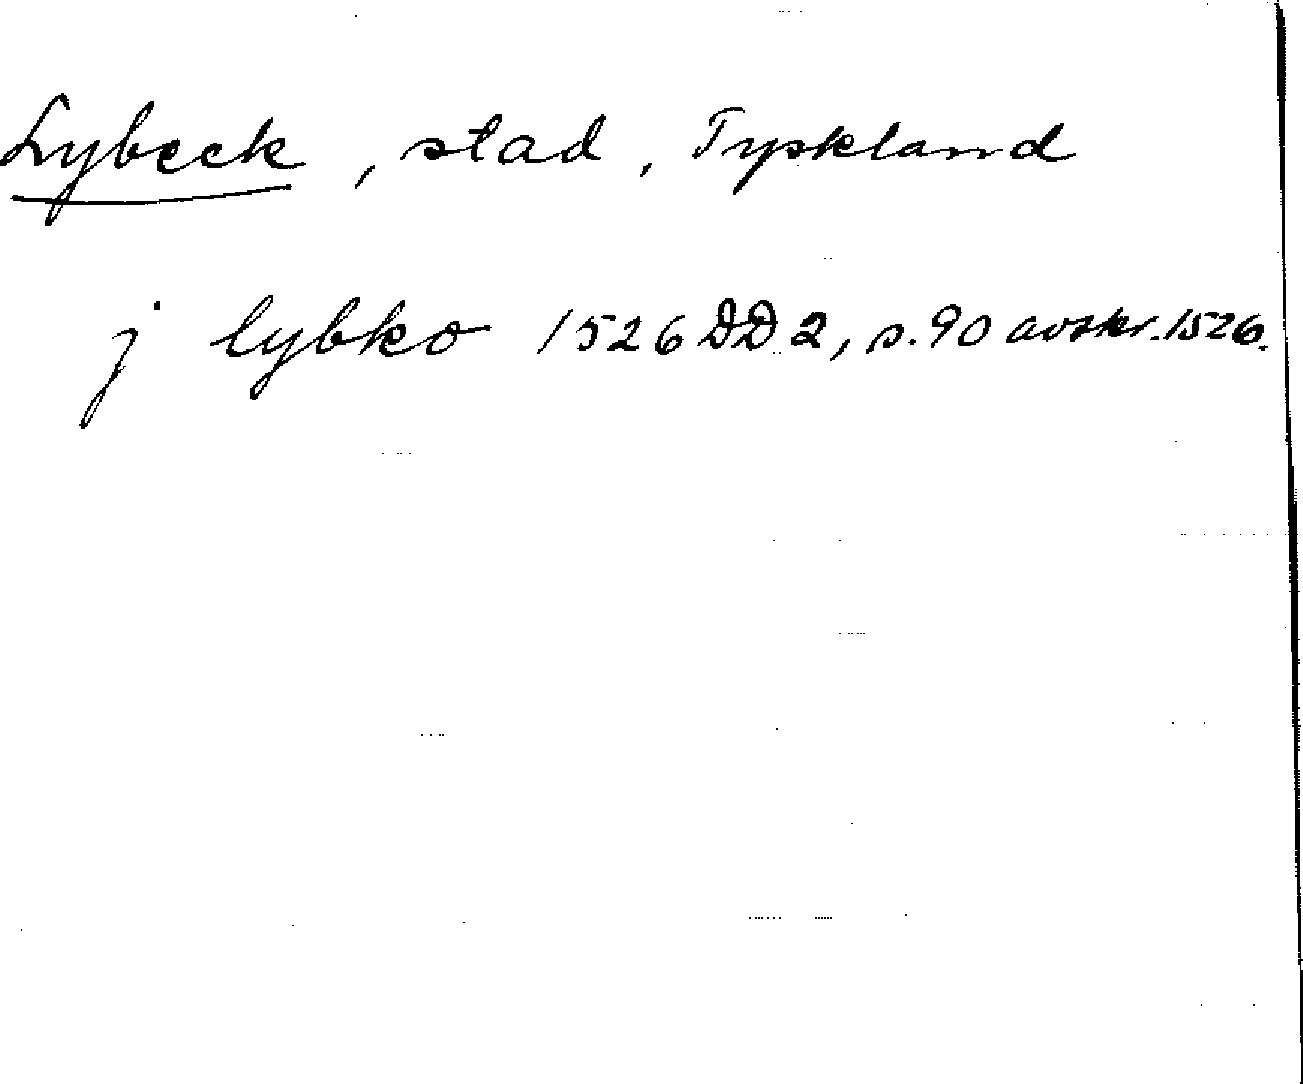 Lybeck, stad, Tyskland
j lybko 1526 DD 2, s. 90 avskr. 1526.